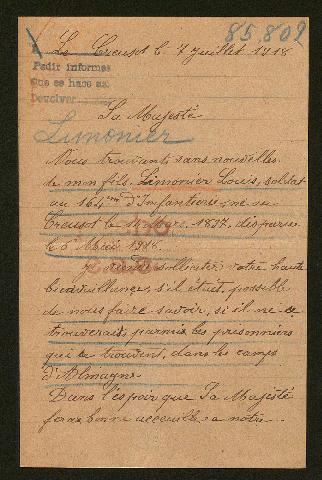 85.802
Le Creusot le 7 Juillet 1918
Pedir informes
que se hace asi
Devolver
Sa Majesté
Limonier
Nous trouvants sans nouvelles
de mon fils, Limonier Louis, soldat
au 164ème d'Infanterie, né au
Creusot le 14 1897, disparu
le 6 Mai 1918.
Je viends sollicitée, votre haute
bienveillance, s'il était possible
de nous faire savoir, si il ne se
trouverait, parmis les prisonniers
qui se trouvent, dans les camps
d'Almagne.
Dans l'espoir que Sa Majesté
feras bonne acceuille a notre